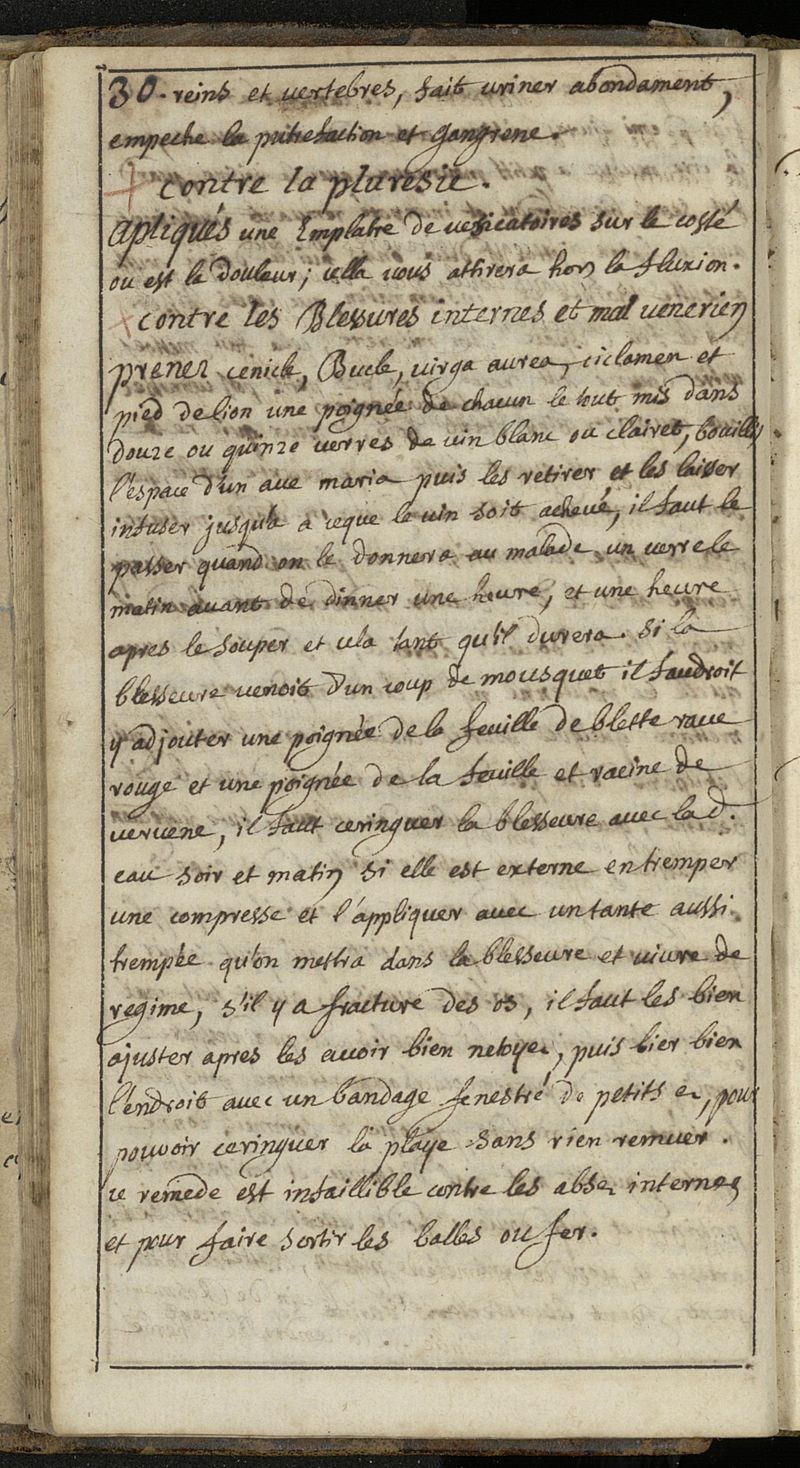 30. reins et vertebres, fait uriner abondament,
empeche la putrefaction et gangrene.
contre la pluresie.
apliqués une Emplatre de vesicatoires sur le costé
ou est la douleur; cella vous attirera hors la fluxion.
contre les Blessures internes et mal venerien
prenez cenicle, Bucle, virga aurea, ciclamen et
pied de lion une poignée de chacun le tout mis dans
douze ou quinze verres de vin blanc ou clairet, bouillis
l'espace d'un ave maria puis les retirer et les laisser
infuser jusqu'a a ceque le vin soit achevé, il faut le
passer quand on le donnera au malade un verre le
matin avant de dinner une heure, et une heure
apres le souper et cela tant qu'il durera. si la
blesseure venoit d'un coup de mousquet il faudroit
y adjouter une poignée de la feuille de blette rave
rouge et une poignée de la feuille et racine de
vervene, il faut ceringuer la blesseure avec lad.
eau soir et matin si elle est externe en tremper
une compresse et l'appliquer avec un tante aussi
trempée qu'on mettra dans la blesseure et vivre de
regime, s'il y a fracture des os, il faut les bien
ajuster apres les avoir bien netoyez, puis lier bien
l'endroit avec un bandage fenestré de petits ez, pour
pouvoir ceringuer la playe sans rien remuer.
ce remede est infaillible contre les absez internes
et pour faire sortir les balles ou fer.